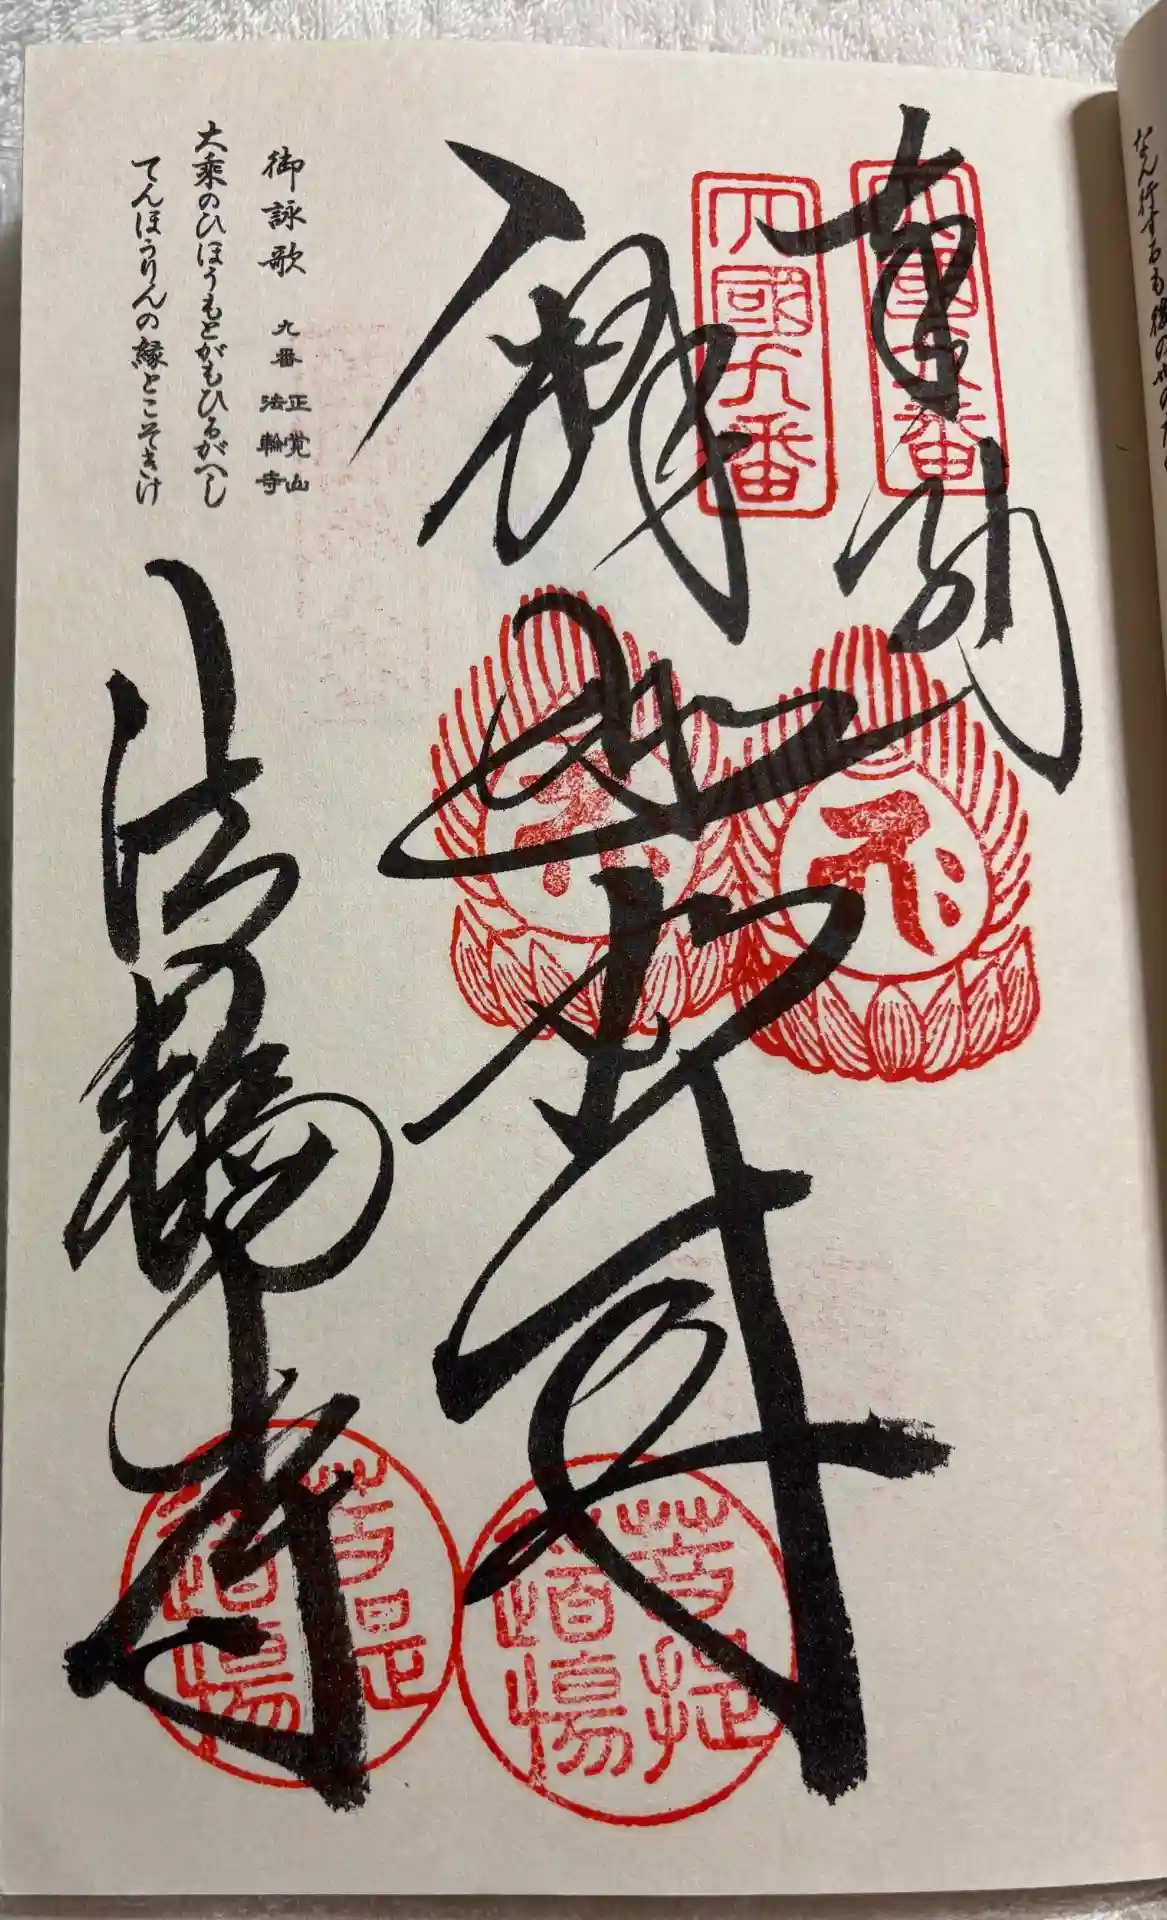 なん行するも後の世のた
奉納
四國九番
四國九番
釋迦如来
菩提道場
菩提道場
法輪寺
御詠歌 九番 正覚山 法輪寺
大乗のひほうもとがもひるがへし
てんほうりんの縁とこそきけ